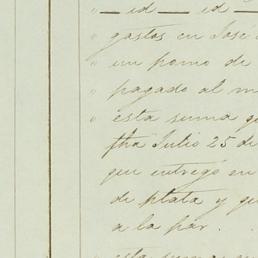 " — id — id —
" gastos en José
" un pomo de
" pagado al m
" esta suma q
fha Julio 25 de
que entregó en
de plata y qu
a la par.
" esta suma